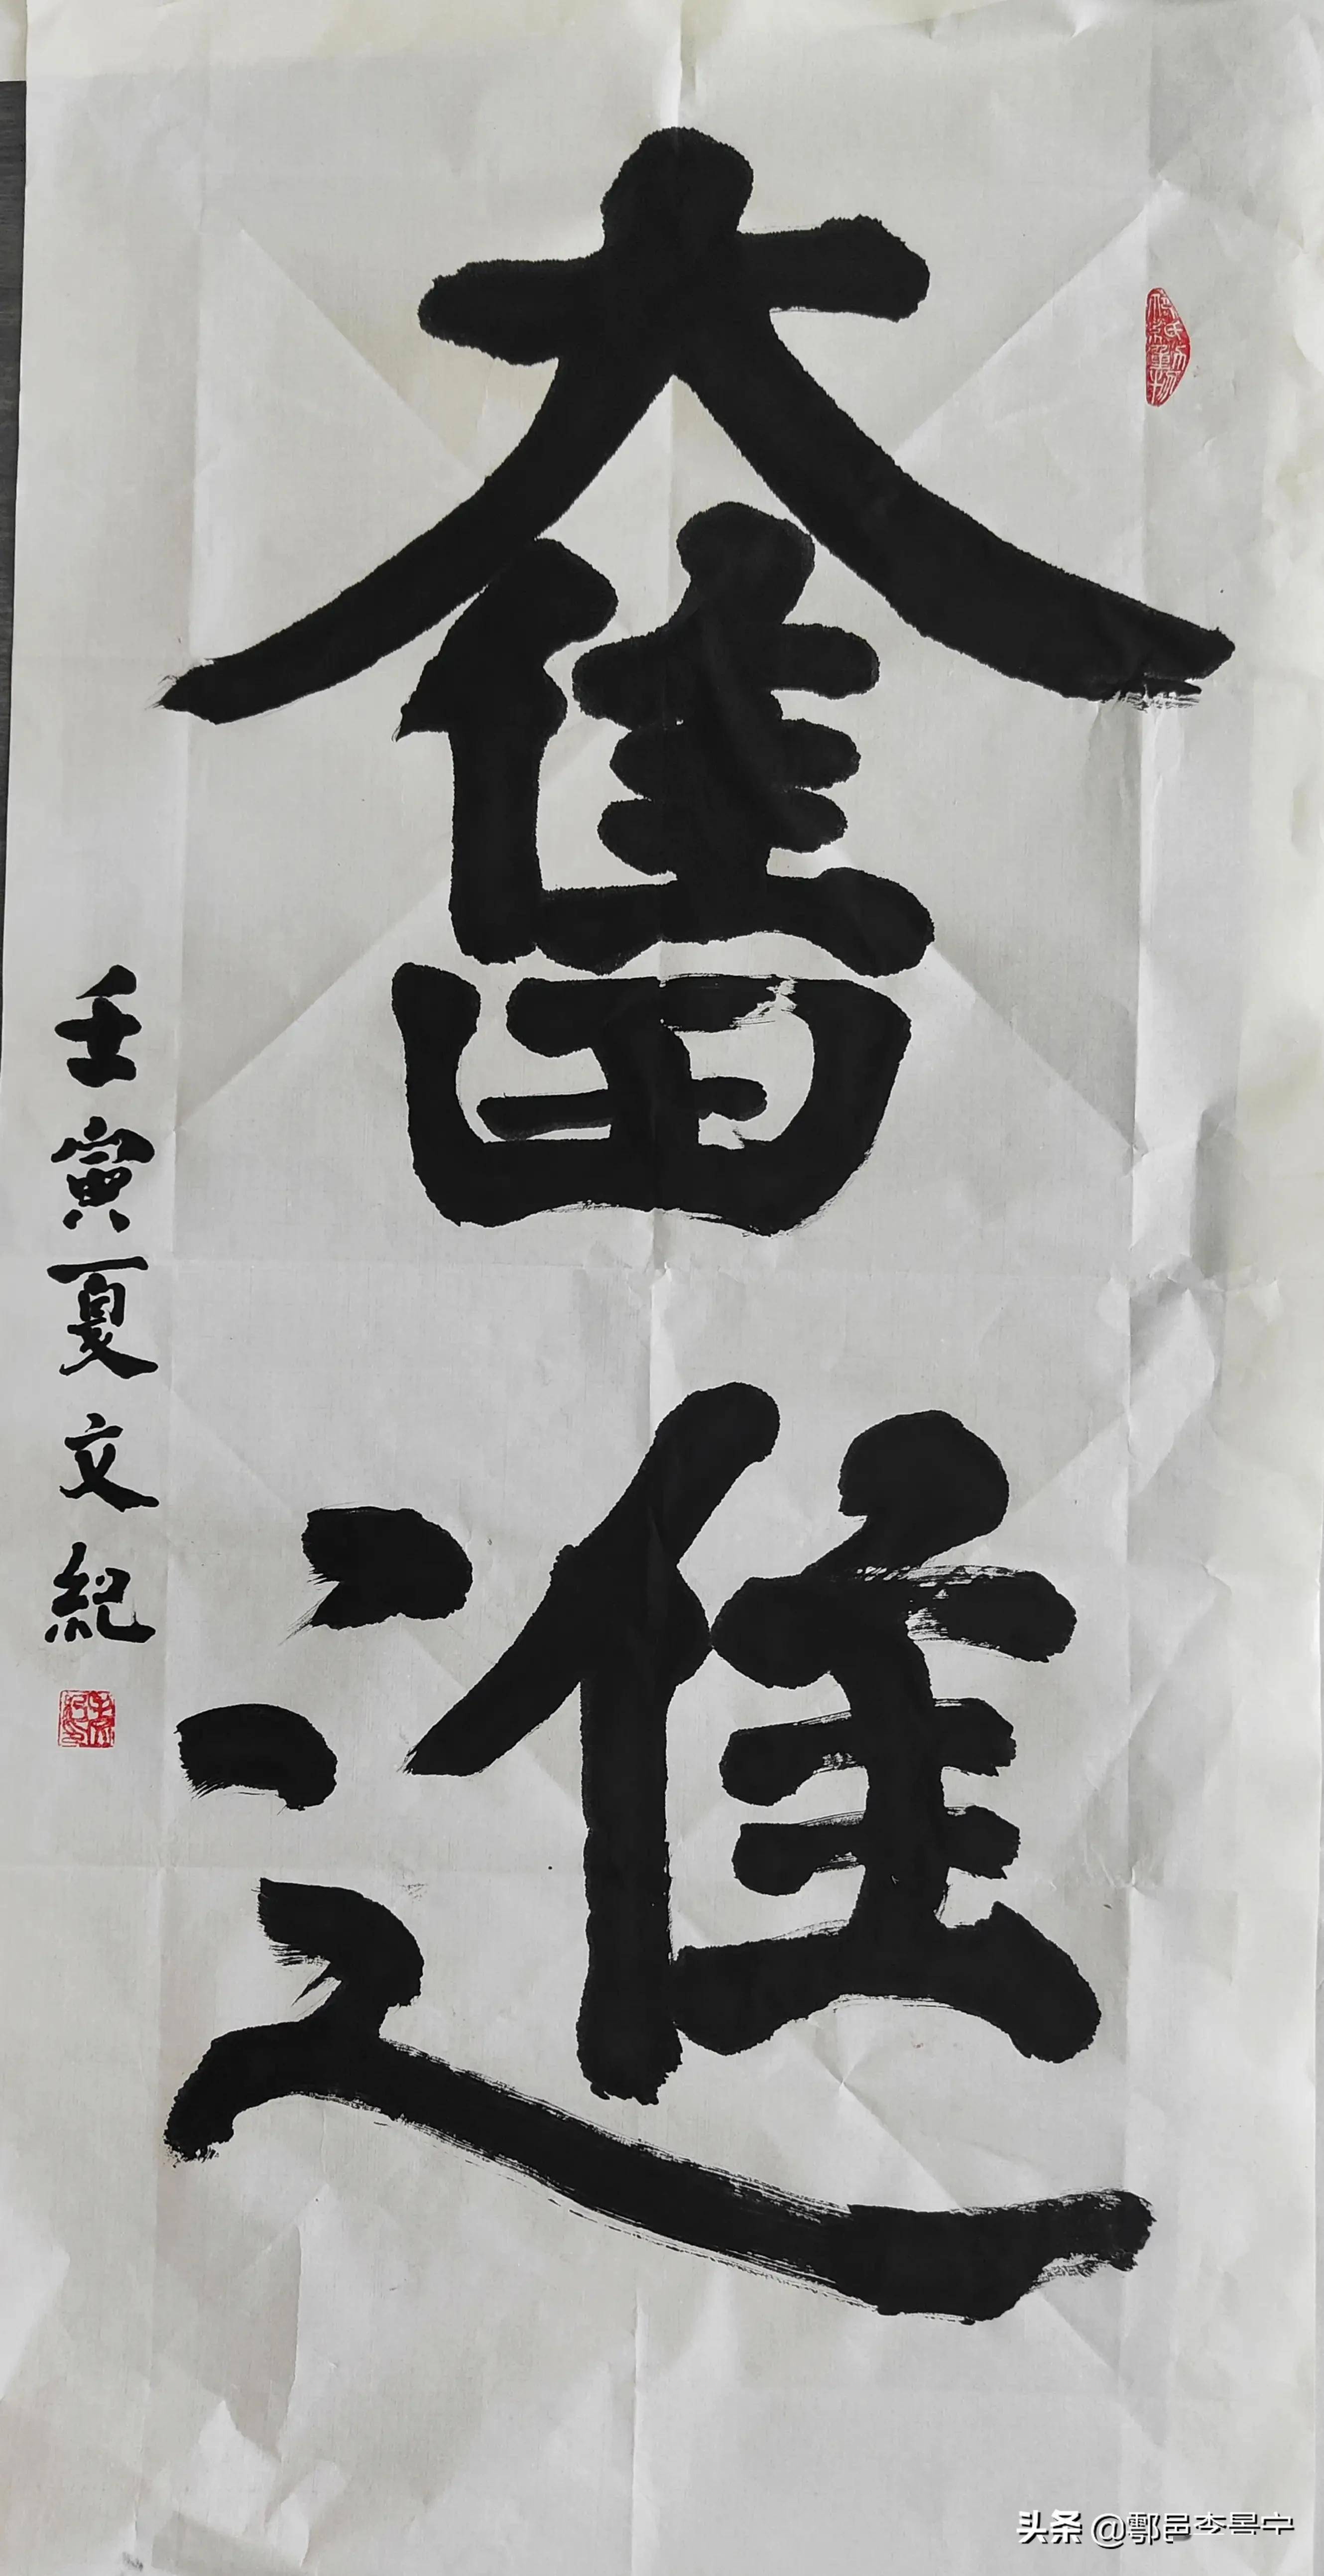 奮進
壬寅夏文紀
头条 @鄠邑李景宁